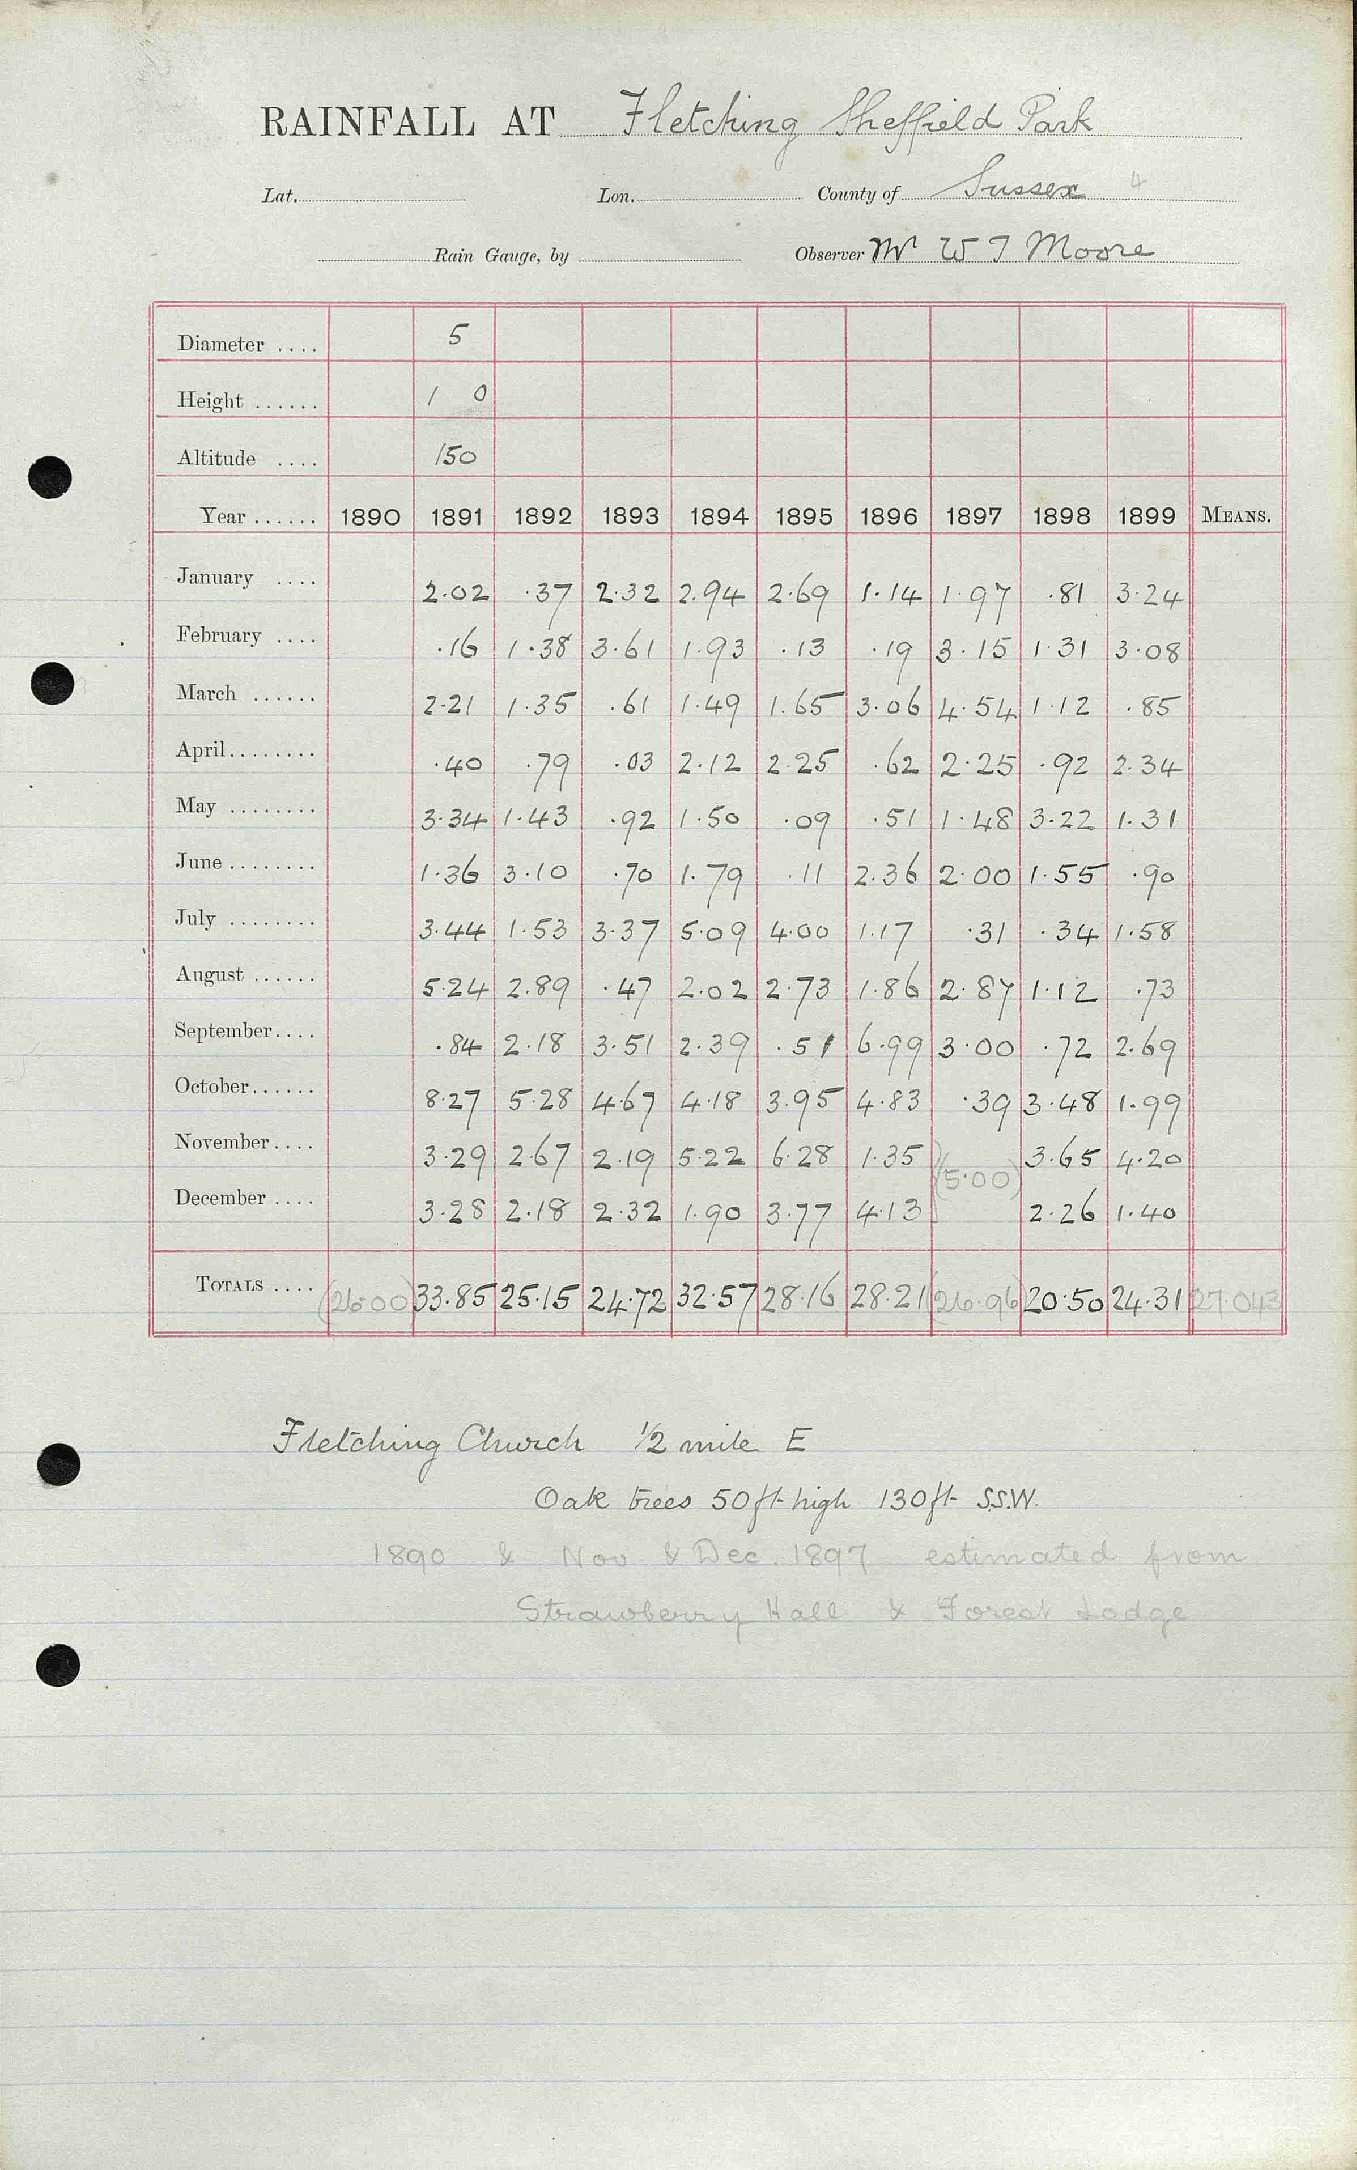 RAINFALL AT Fletching Sheffield Park
Lat. Lon. County of Sussex 4
Rain Gauge, by Observer Mr W T Moore
Diameter .... 5
Height ...... 1 0
Altitude .... 150
Year ...... 1890 1891 1892 1893 1894 1895 1896 1897 1898 1899 MEANS.
January .... 2.02 .37 2.32 2.94 2.69 1.14 1.97 .81 3.24
February .... .16 1.38 3.61 1.93 .13 .19 3.15 1.31 3.08
March ...... 2.21 1.35 .61 1.49 1.65 3.06 4.54 1.12 .85
April........ .40 .79 .03 2.12 2.25 .62 2.25 .92 2.34
May ........ 3.34 1.43 .92 1.50 .09 .51 1.48 3.22 1.31
June ........ 1.36 3.10 .70 1.79 .11 2.36 2.00 1.55 .90
July ........ 3.44 1.53 3.37 5.09 4.00 1.17 .31 .34 1.58
August ...... 5.24 2.89 .47 2.02 2.73 1.86 2.87 1.12 .73
September.... .84 2.18 3.51 2.39 .51 6.99 3.00 .72 2.69
October...... 8.27 5.28 4.67 4.18 3.95 4.83 .39 3.48 1.99
November.... 3.29 2.67 2.19 5.22 6.28 1.35 (5.00) 3.65 4.20
December .... 3.28 2.18 2.32 1.90 3.77 4.13 2.26 1.40
TOTALS .... (26.00) 33.85 25.15 24.72 32.57 28.16 28.21 (26.96) 20.50 24.31 27.043
Fletching Church 1/2 mile E
Oak trees 50ft high 130ft S.S.W.
1890 & Nov & Dec. 1897 estimated from
Strawberry Hall & Forest Lodge